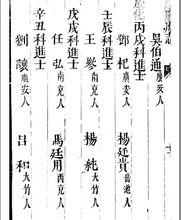 吳伯通廣安人
丙戌科進士
鄧杞廣安人　楊廷貴岳池人
壬辰科進士
王㒜南充人　楊純大竹人
戊戌科進士
任弘南充人　馬廷用西充人
辛丑科進士
劉讓廣安人　呂和大竹人